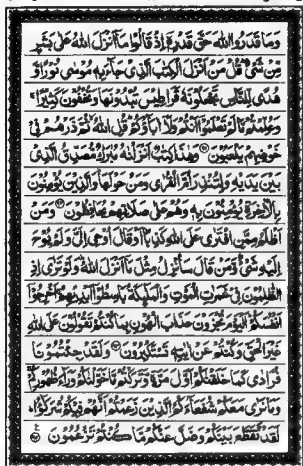 وَمَا قَدَرُوا اللّٰهَ حَقَّ قَدْرِهٖٓ اِذْ قَالُوْا مَآ اَنْزَلَ اللّٰهُ عَلٰى بَشَرٍ
مِّنْ شَىْءٍ ؕ قُلْ مَنْ اَنْزَلَ الْكِتٰبَ الَّذِىْ جَآءَ بِهٖ مُوْسٰى نُوْرًا وَّ
هُدًى لِّلنَّاسِ تَجْعَلُوْنَهٗ قَرَاطِيْسَ تُبْدُوْنَهَا وَتُخْفُوْنَ كَثِيْرًا ۚ
وَعُلِّمْتُمْ مَّا لَمْ تَعْلَمُوْٓا اَنْتُمْ وَلَآ اٰبَآؤُكُمْ ؕ قُلِ اللّٰهُ ۙ ثُمَّ ذَرْهُمْ فِىْ
خَوْضِهِمْ يَلْعَبُوْنَ ﴿۹۱﴾ وَهٰذَا كِتٰبٌ اَنْزَلْنٰهُ مُبٰرَكٌ مُّصَدِّقُ الَّذِىْ
بَيْنَ يَدَيْهِ وَلِتُنْذِرَ اُمَّ الْقُرٰى وَمَنْ حَوْلَهَا ؕ وَالَّذِيْنَ يُؤْمِنُوْنَ
بِالْاٰخِرَةِ يُؤْمِنُوْنَ بِهٖ وَهُمْ عَلٰى صَلَاتِهِمْ يُحَافِظُوْنَ ﴿۹۲﴾ وَمَنْ
اَظْلَمُ مِمَّنِ افْتَرٰى عَلَى اللّٰهِ كَذِبًا اَوْ قَالَ اُوْحِىَ اِلَىَّ وَلَمْ يُوْحَ
اِلَيْهِ شَىْءٌ وَّمَنْ قَالَ سَاُنْزِلُ مِثْلَ مَآ اَنْزَلَ اللّٰهُ ؕ وَلَوْ تَرٰٓى اِذِ
الظّٰلِمُوْنَ فِىْ غَمَرٰتِ الْمَوْتِ وَالْمَلٰٓئِكَةُ بَاسِطُوْٓا اَيْدِيْهِمْ ۚ اَخْرِجُوْٓا
اَنْفُسَكُمْ ؕ اَلْيَوْمَ تُجْزَوْنَ عَذَابَ الْهُوْنِ بِمَا كُنْتُمْ تَقُوْلُوْنَ عَلَى اللّٰهِ
غَيْرَ الْحَقِّ وَكُنْتُمْ عَنْ اٰيٰتِهٖ تَسْتَكْبِرُوْنَ ﴿۹۳﴾ وَلَقَدْ جِئْتُمُوْنَا
فُرَادٰى كَمَا خَلَقْنٰكُمْ اَوَّلَ مَرَّةٍ وَّتَرَكْتُمْ مَّا خَوَّلْنٰكُمْ وَرَآءَ ظُهُوْرِكُمْ ۚ
وَمَا نَرٰى مَعَكُمْ شُفَعَآءَكُمُ الَّذِيْنَ زَعَمْتُمْ اَنَّهُمْ فِيْكُمْ شُرَكٰٓؤُا ؕ
لَقَدْ تَّقَطَّعَ بَيْنَكُمْ وَضَلَّ عَنْكُمْ مَّا كُنْتُمْ تَزْعُمُوْنَ ﴿۹۴﴾